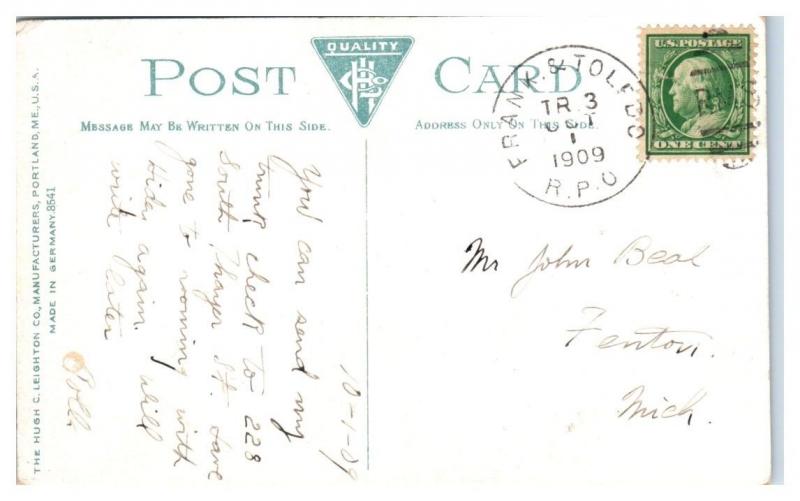 POST CARD
QUALITY
MESSAGE MAY BE WRITTEN ON THIS SIDE.
ADDRESS ONLY ON THIS SIDE.
FRANK. & TOLEDO
TR. 3
OCT
1
1909
R.P.O
U.S. POSTAGE
ONE CENT
THE HUGH C. LEIGHTON CO., MANUFACTURERS, PORTLAND, ME., U.S.A.
MADE IN GERMANY. 8541
10-1-09
You can send my
trunk check to 228
South Thayer St. have
gone to rooming with
Hides again. Will
write later
Mr John Beal
Fenton.
Mich.